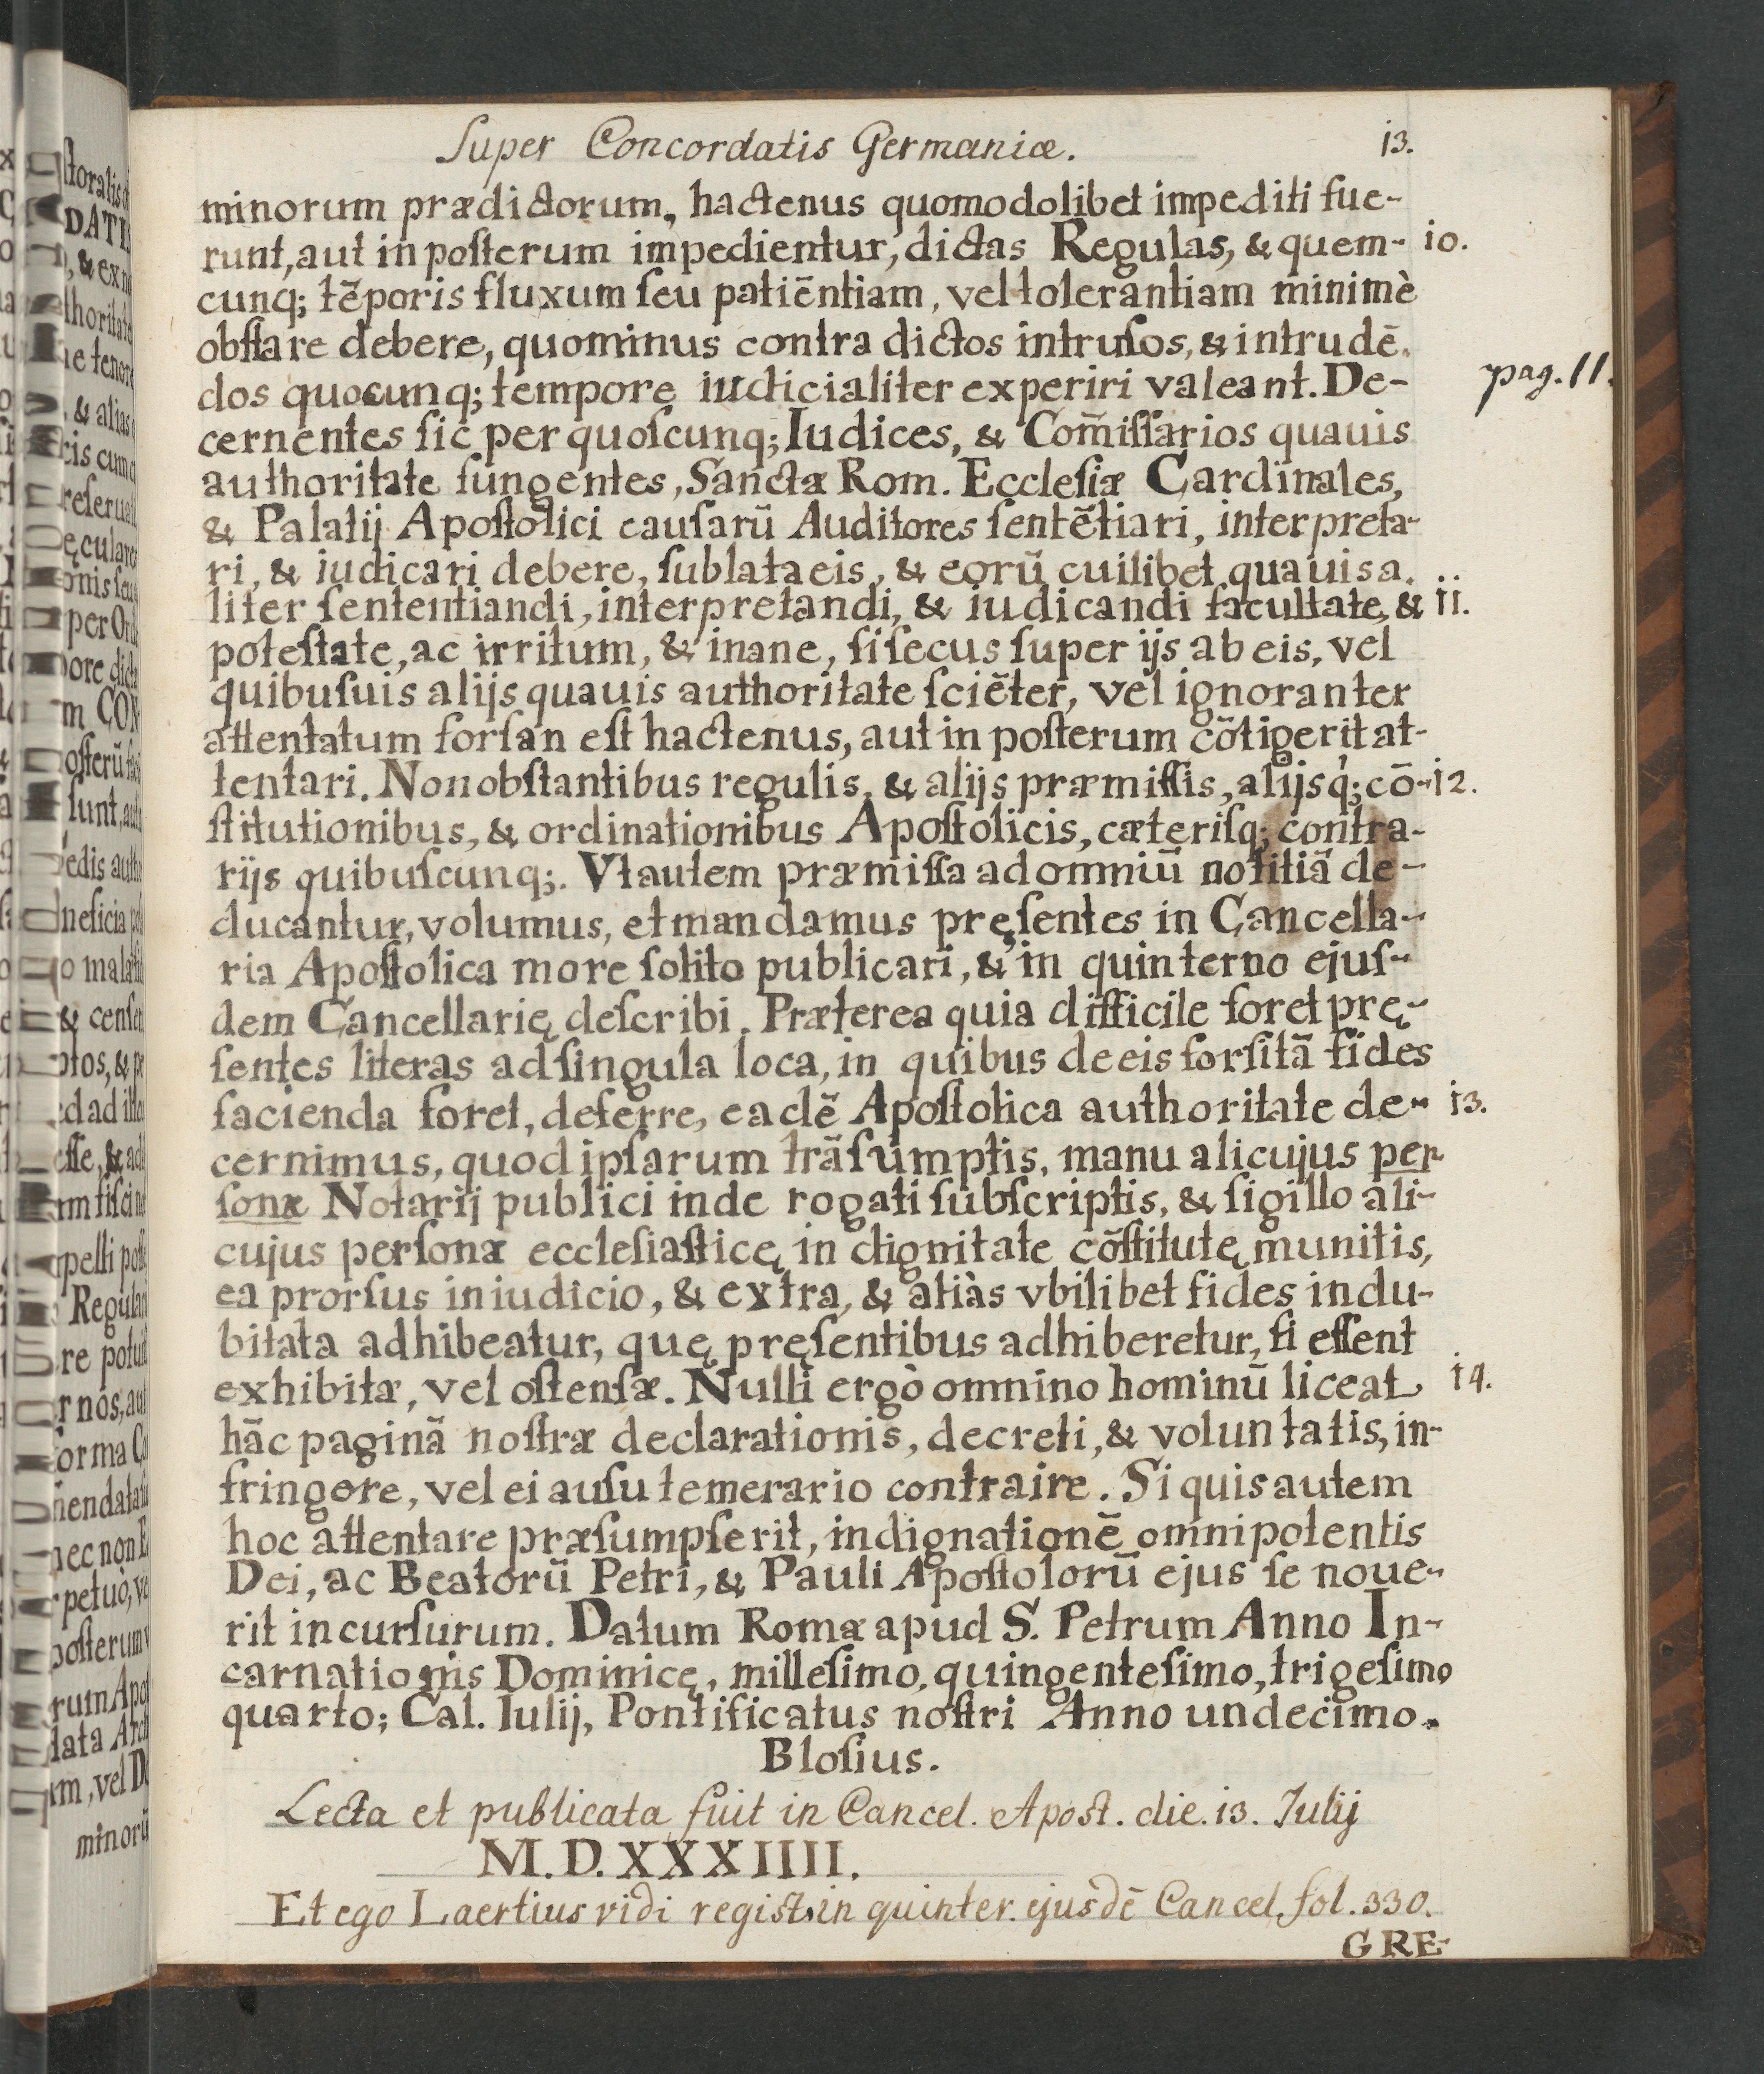 Super Concordatis Germaniæ. 13.
minorum prædictorum, hactenus quomodolibet impediti fue-
runt, aut in poſterum impedientur, dictas Regulas, & quem- 10.
cunq; tẽporis fluxum ſeu patiẽntiam, vel tolerantiam minimè
obſtare debere, quominus contra dictos intruſos, & intrudẽ.
dos quocunq; tempore iudicialiter experiri valeant. De- pag. 11.
cernentes ſic per quoſcunq; Iudices, & Com̃iſſarios quauis
authoritate fungentes, Sanctæ Rom. Eccleſiæ Cardinales,
& Palatij Apoſtolici cauſarũ Auditores ſentẽtiari, interpreta-
ri, & iudicari debere, ſublata eis, & eorũ cuilibet quauis a.
liter ſententiandi, interpretandi, & iudicandi facultate, & 11.
poteſtate, ac irritum, & inane, ſi ſecus ſuper ijs ab eis, vel
quibuſuis alijs quauis authoritate ſciẽter, vel ignoranter
attentatum forſan eſt hactenus, aut in poſterum cõtigerit at-
tentari. Non obſtantibus regulis, & alijs præmiſſis, alijsq́; cõ- 12.
ſtitutionibus, & ordinationibus Apoſtolicis, cæteriſq; contra-
rijs quibuſcunq;. Vt autem præmiſſa ad omniũ notitiã de-
ducantur, volumus, et mandamus pręſentes in Cancella-
ria Apoſtolica more ſolito publicari, & in quinterno ejuſ-
dem Cancellarię deſcribi. Præterea quia difficile foret prę-
ſentes literas ad ſingula loca, in quibus de eis forſitã fides
facienda foret, deferre, eadẽ Apoſtolica authoritate de- 13.
cernimus, quod ipſarum trãſumptis, manu alicujus per
ſonæ Notarij publici inde rogati ſubſcriptis, & ſigillo ali-
cujus perſonæ eccleſiaſticę in dignitate cõſtitutę munitis,
ea prorſus in iudicio, & extra, & aliàs vbilibet fides indu-
bitata adhibeatur, quę pręſentibus adhiberetur, ſi eſſent
exhibitæ, vel oſtenſæ. Nulli ergò omnino hominũ liceat 14.
hãc paginã noſtræ declarationis, decreti, & voluntatis, in-
fringere, vel ei auſu temerario contraire. Si quis autem
hoc attentare præſumpſerit, indignationẽ omnipotentis
Dei, ac Beatorũ Petri, & Pauli Apoſtolorũ ejus ſe noue-
rit incurſurum. Datum Romæ apud S. Petrum Anno In-
carnationis Dominicę, milleſimo, quingenteſimo, trigeſimo
quarto; Cal. Iulij, Pontificatus noſtri Anno undecimo.
Bloſius.
Lecta et publicata fuit in Cancel. Apost. die. 13. Julij
M.D.XXXIIII.
Et ego Laertius vidi regist. in quinter. ejusdẽ Cancel. fol. 330.
GRE-